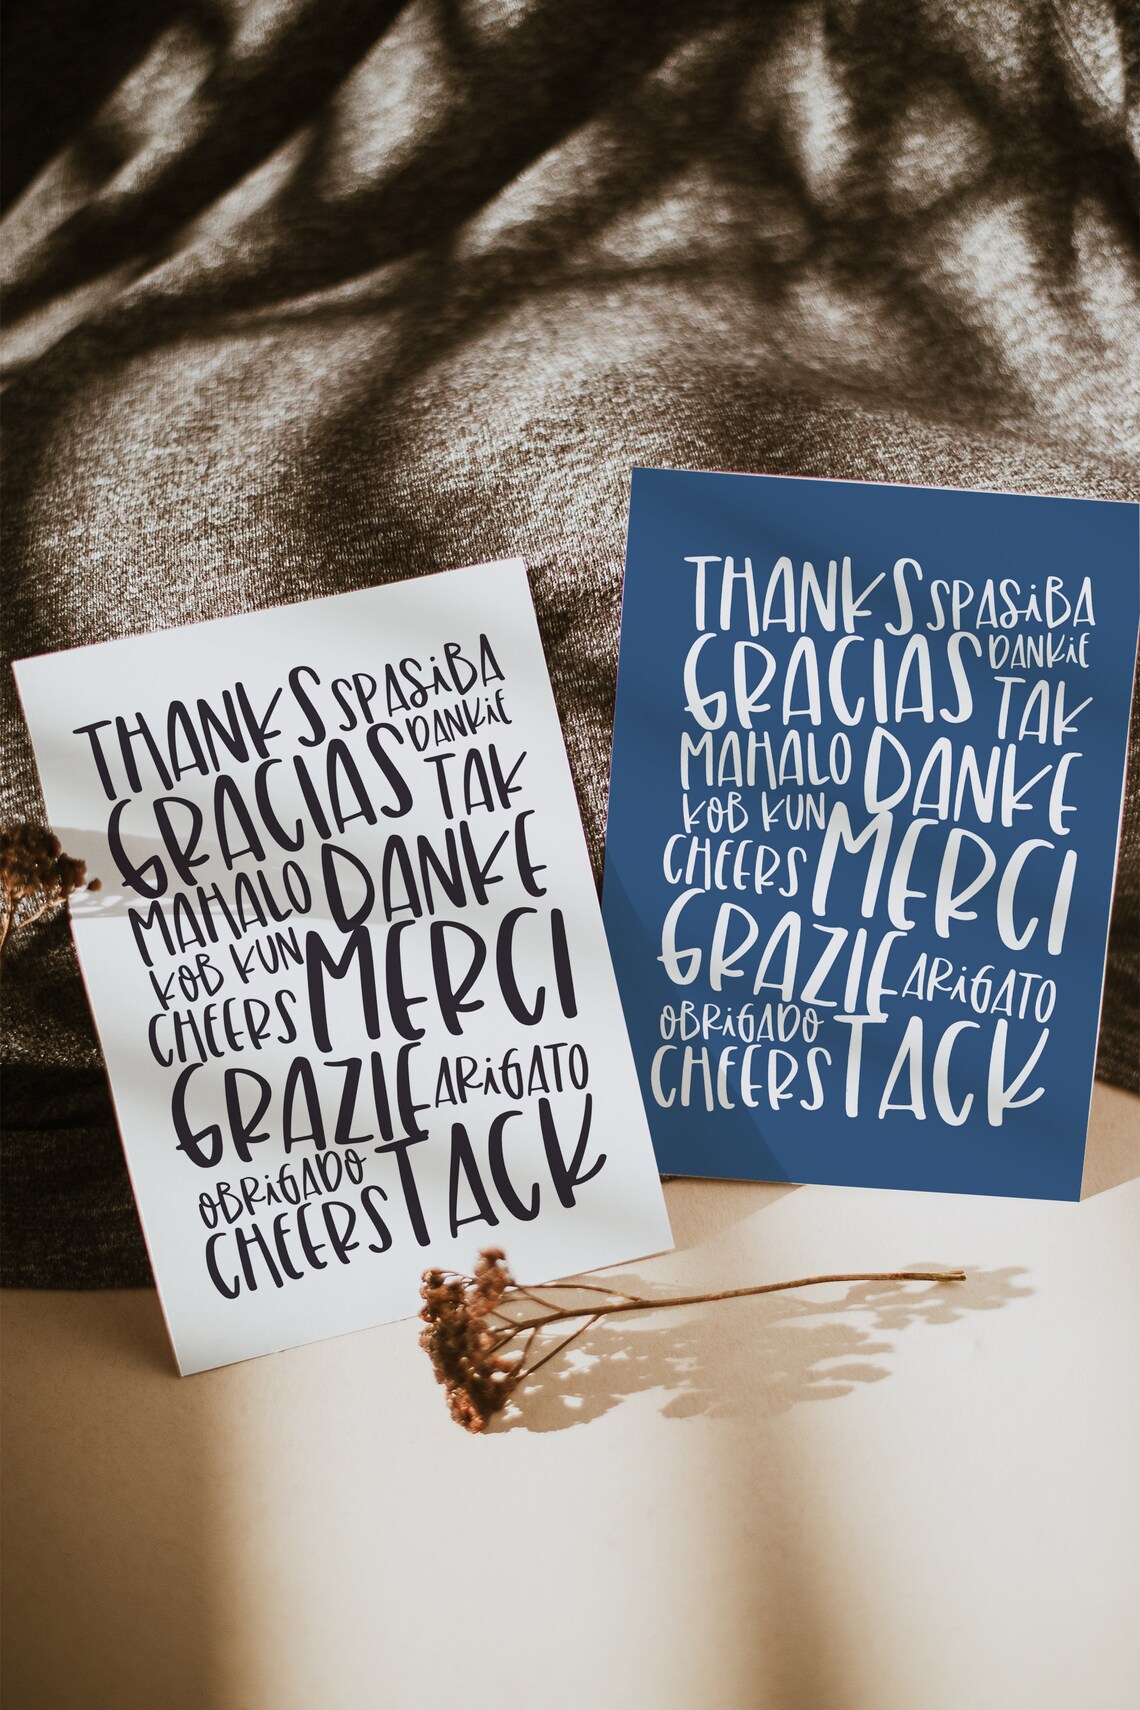 THANKS SPASiBA
GRACIAS DANKiE
TAK
MAHALO DANKE
KOB KUN
CHEERS MERCI
GRAZIE ARiGATO
OBRiGADO
CHEERS TACK
THANKS SPASiBA
GRACIAS DANKiE
TAK
MAHALO DANKE
KOB KUN
CHEERS MERCI
GRAZIE ARiGATO
OBRiGADO
CHEERS TACK